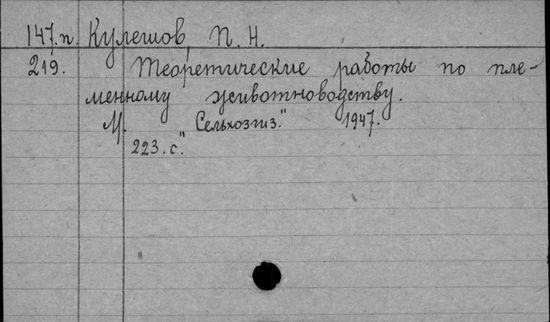 147.п. Кулешов, П. Н.
219. Теоретические работы по пле-
менному животноводству.
М. "Сельхозгиз." 1947.
223. с.